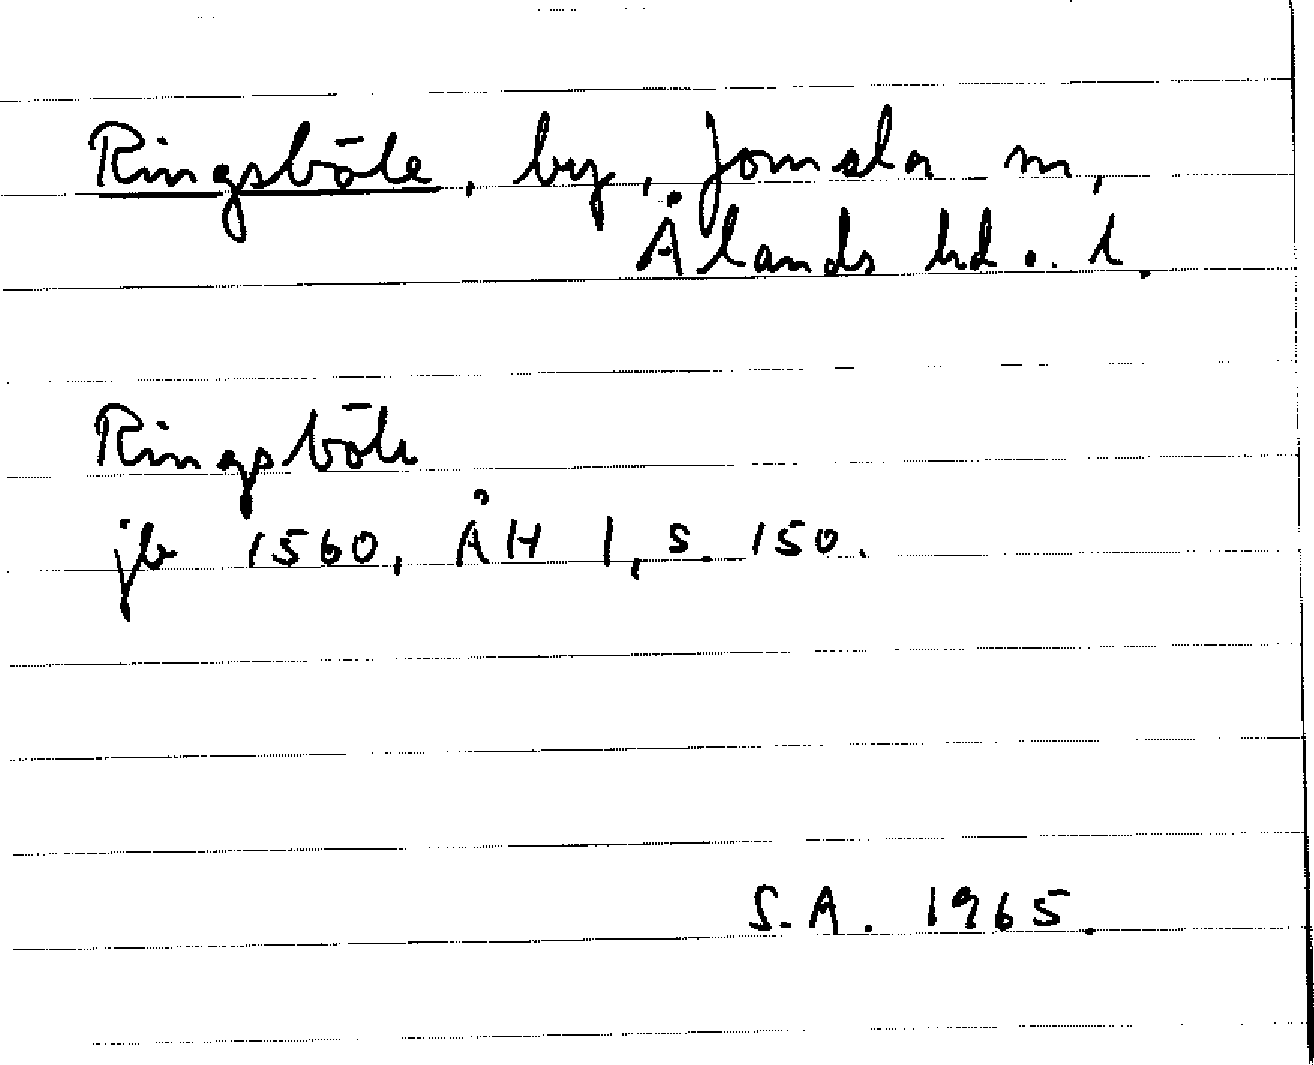 Ringsböle, by, Jomala sn,
Ålands hd o. l.
Ringsböle
jb 1560, ÅH 1, s. 150.
S.A. 1965.